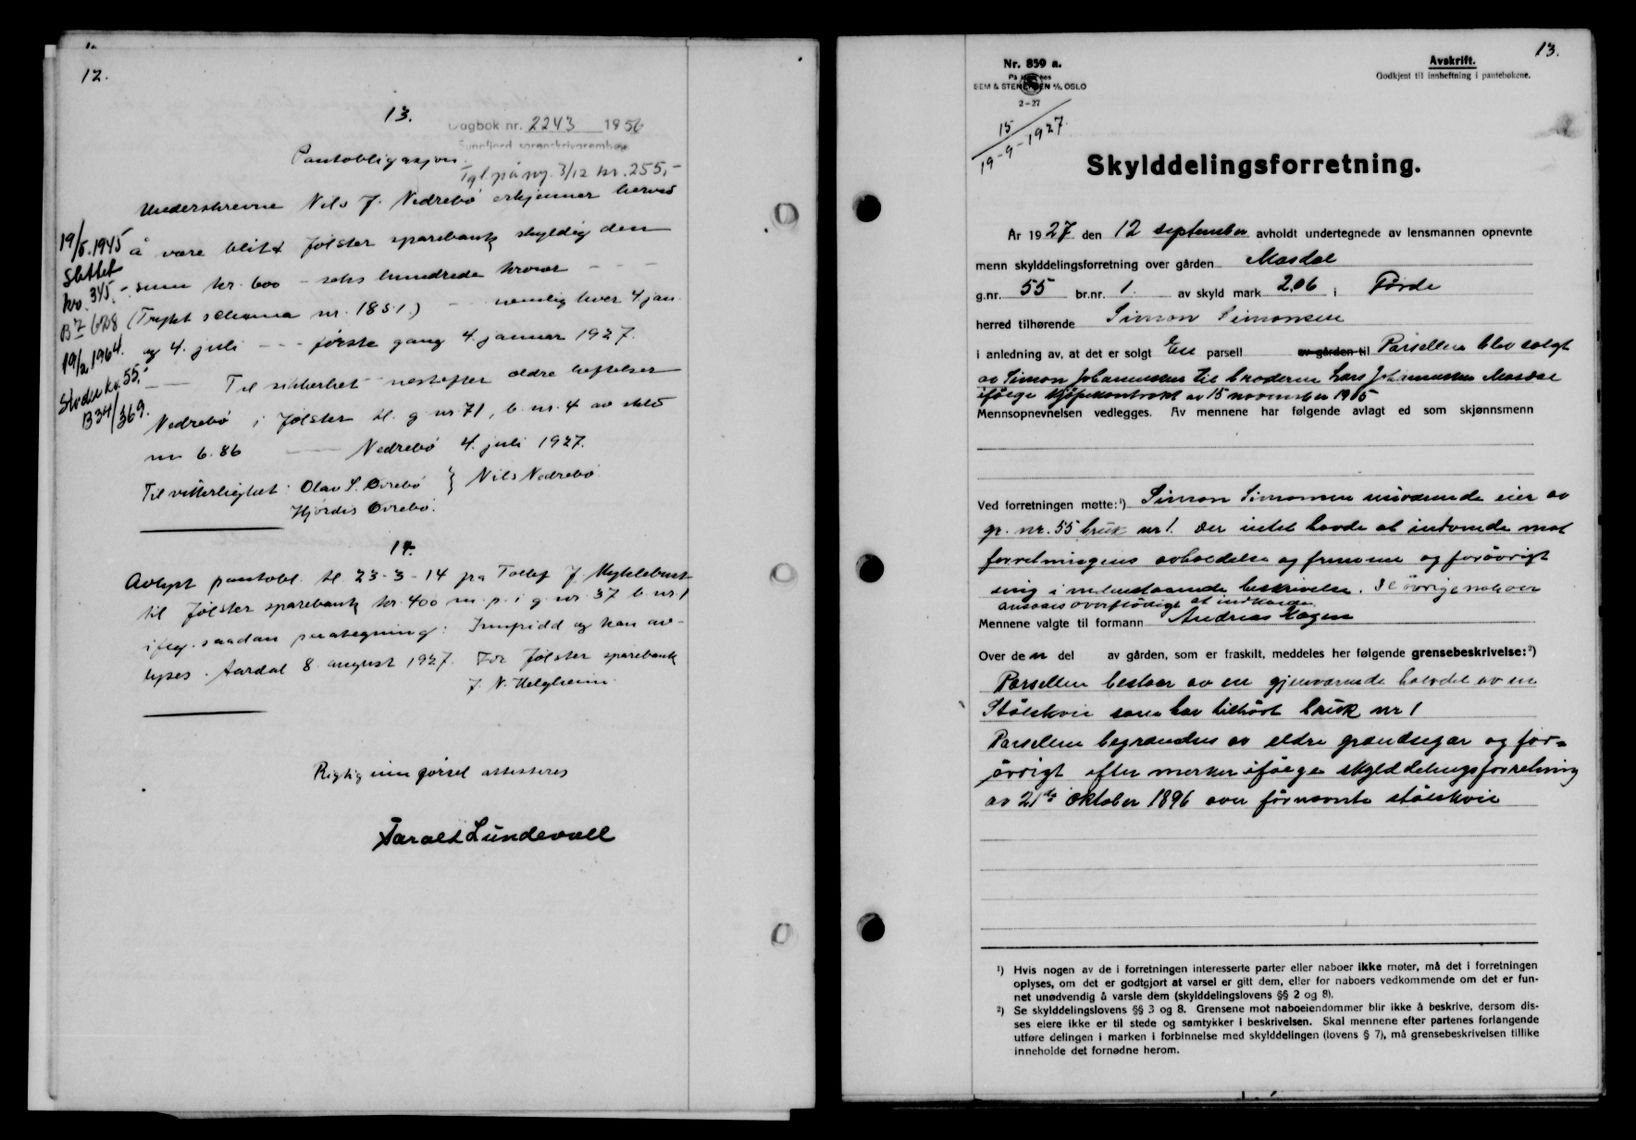 12.
13.
Dagbok nr. 2243 1956
Sunnfjord sorenskriverembete
Pantobligasjon.
Tgl. på ny. 3/12 kr. 255,-
Underskrevne Nils J. Nedrebø erkjenner herved
å være blitt Jølster sparebank skyldig den
sum kr. 600 - seks hundrede kroner - - -
(Trykt schema nr. 1851) - - nemlig hver 4 jan.
og 4. juli - - - første gang 4. januar 1927.
- - Til sikkerhet - nestefter ældre heftelser
Nedrebø i Jølster hd. g nr. 71, b. nr. 4 av skyld
mr 6.86 - - Nedrebø 4. juli 1927.
Til vitterlighet: Olav S. Øvrebø } Nils Nedrebø
Hjørdis Øvrebø.
19/5.1945
Slettet
kr. 345.-
B7 628
19/2 1964.
Slettet kr. 55,-
B34/369.
14.
Avlyst pantobl. tl. 23-3-14 fra Tollef J. Myklebust
til Jølster sparebank kr. 400 m. p. i g. nr. 37 b. nr. 1
iflg. saadan paategning: Innfridd og kan av-
lyses. Aardal 8. august 1927. For Jølster sparebank
J. N. Helgheim.
Rigtig innførsel attesteres
Harald Lundevall
13.
Nr. 859 a.
SEM & STENERSEN A/S, OSLO
2-27
Avskrift.
Godkjent til innheftning i pantebøkene.
15/19-9-1927.
Skylddelingsforretning.
År 1927 den 12 september avholdt undertegnede av lensmannen opnevnte
menn skylddelingsforretning over gården Masdal
g.nr. 55 br.nr. 1. av skyld mark 2.06 i Førde
herred tilhørende Simon Simonsen
i anledning av, at det er solgt En parsell av gården til Parsellen blev solgt
av Simon Johannesen til broderen Lars Johannesen Masdal
ifølge kjøpekontrakt av 15 november 1905
Mennsopnevnelsen vedlegges. Av mennene har følgende avlagt ed som skjønnsmenn
Ved forretningen møtte:¹) Simon Simonsen nuværende eier av
gr. nr. 55 bruk nr 1. Der intet havde at indvende mot
forretningens avholdelse og fremme og forøvrigt
enig i nedenstaaende beskrivelse. De øvrige naboer
ansaaes overflødigt at indkalde.
Mennene valgte til formann Andreas Hagen
Over den del av gården, som er fraskilt, meddeles her følgende grensebeskrivelse:²)
Parsellen bestaar av en gjenværende halvdel av en
Stølskvie som har tilhørt bruk nr 1
Parsellen begrændses av eldre grændsegar og for-
øvrigt efter merker ifølge skylddelingsforretning
av 21de oktober 1896 over førnevnte stølskvie
¹) Hvis nogen av de i forretningen interesserte parter eller naboer ikke møter, må det i forretningen
oplyses, om det er godtgjort at varsel er gitt dem, eller for naboers vedkommende om det er fun-
net unødvendig å varsle dem (skylddelingslovens §§ 2 og 8).
²) Se skylddelingslovens §§ 3 og 8. Grensene mot naboeiendommer blir ikke å beskrive, dersom dis-
ses eiere ikke er til stede og samtykker i beskrivelsen. Skal mennene efter partenes forlangende
utføre delingen i marken i forbinnelse med skylddelingen (lovens § 7), må grensebeskrivelsen tillike
inneholde det fornødne herom.